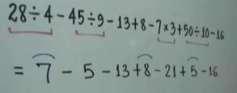 28÷4-45÷9-13+8-7×3+50÷10-16
= 7 - 5 - 13+8 - 21+5 -16